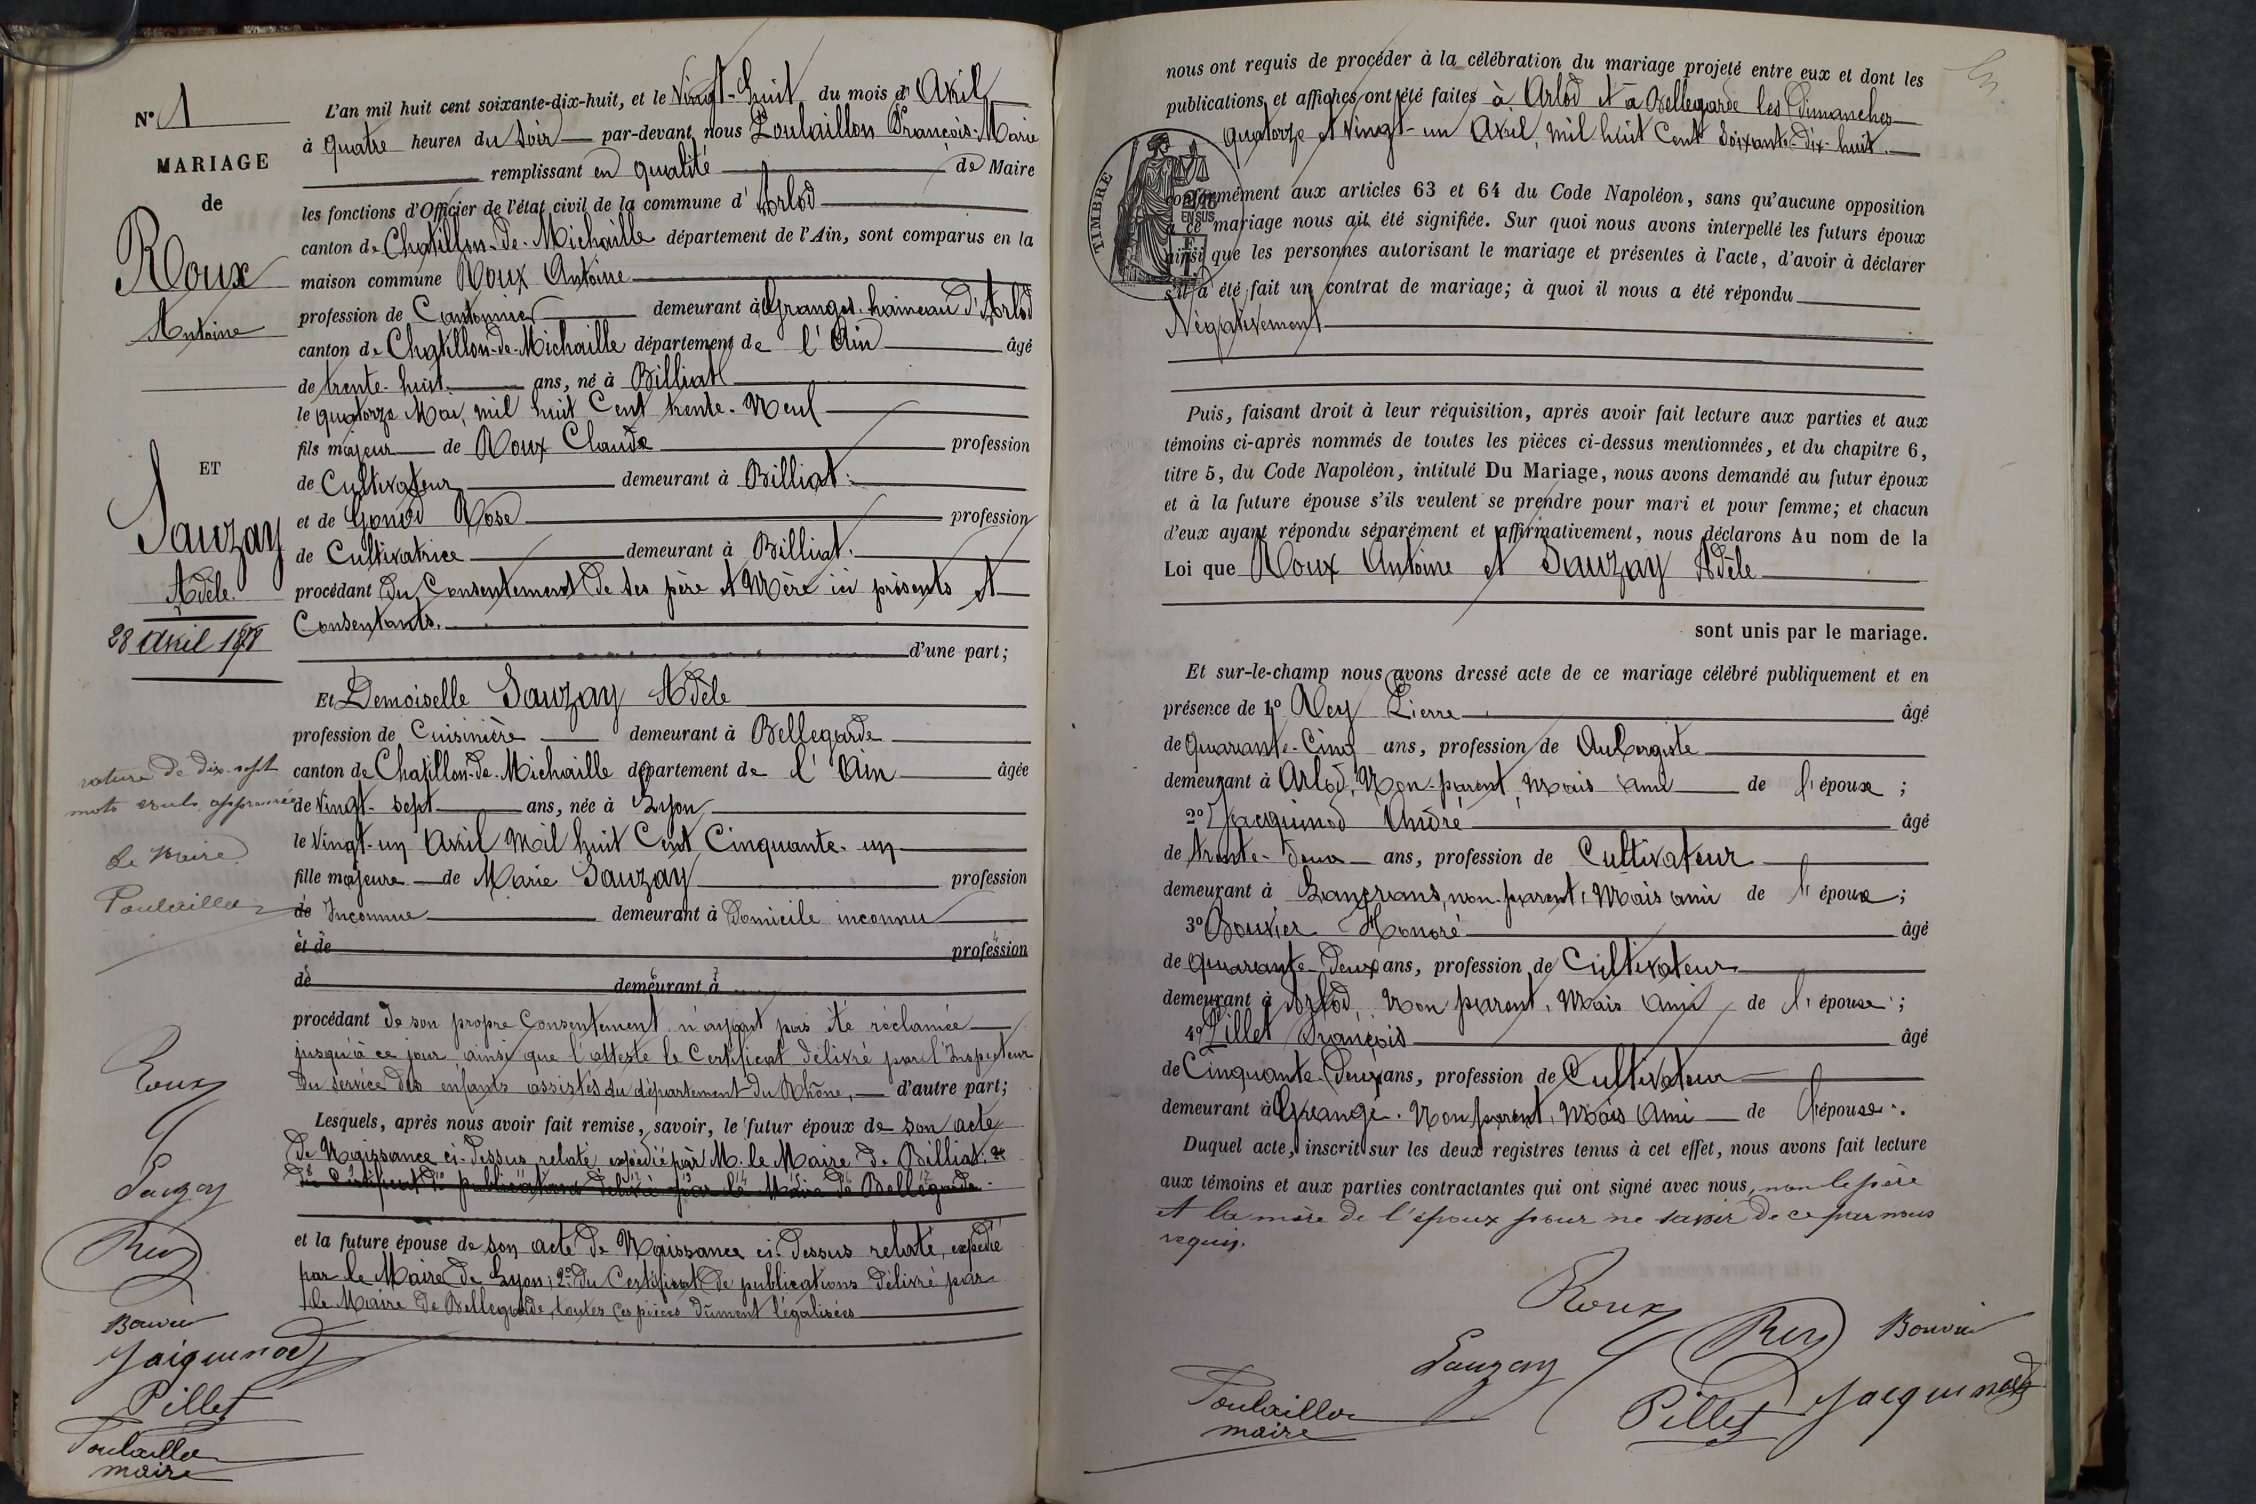 N° 1
MARIAGE
de
Roux
Antoine
ET
Sauzay
Adèle
28 avril 1878
rature de dix-sept
mots nuls approuvée
Le Maire
Poulaillon
Roux
Sauzay
Rey
Bouvier
Jaiquinod
Pillet
Poulaillon
maire
L'an mil huit cent soixante-dix-huit, et le Vingt-huit du mois d' Avril
à quatre heures du Soir par-devant nous Poulaillon François-Marie
remplissant en qualité de Maire
les fonctions d'Officier de l'état civil de la commune d' Arlod
canton de Chatillon-de-Michaille département de l'Ain, sont comparus en la
maison commune Roux Antoine
profession de Cantonnier demeurant à Granges, hameau d'Arlod
canton de Chatillon-de-Michaille département de l'Ain âgé
de trente-huit ans, né à Billiat
le quatorze Mai, mil huit Cent trente-Neuf
fils majeur de Roux Claude profession
de Cultivateur demeurant à Billiat.
et de Gonod Rose profession
de Cultivatrice demeurant à Billiat.
procédant du Consentement de ses père et Mère ici présents et
Consentants.
d'une part;
Et Demoiselle Sauzay Adèle
profession de Cuisinière demeurant à Bellegarde
canton de Chatillon-de-Michaille département de l'Ain âgée
de Vingt-sept ans, née à Lyon
le Vingt-un Avril Mil huit Cent Cinquante-un
fille majeure de Marie Sauzay profession
de Inconnue demeurant à Domicile inconnu
et de profession
de demeurant à
procédant de son propre Consentement n'ayant pas été réclamée
jusqu'à ce jour ainsi que l'atteste le Certificat délivré par l'Inspecteur
du service des enfants assistés du département du Rhône, d'autre part;
Lesquels, après nous avoir fait remise, savoir, le futur époux de son acte
de Naissance ci-dessus relaté expédié par M. le Maire de Billiat. et
du Certificat de publications délivré par le Maire de Bellegarde.
et la future épouse de son acte de Naissance ci-dessus relaté, expédié
par le Maire de Lyon; 2° du Certificat de publications délivré par
le Maire de Bellegarde, toutes ces pièces dûment légalisées
nous ont requis de procéder à la célébration du mariage projeté entre eux et dont les
publications et affiches ont été faites à Arlod et à Bellegarde les Dimanches
quatorze et vingt-un Avril, mil huit Cent Soixante-dix-huit.
TIMBRE
EN SUS
conformément aux articles 63 et 64 du Code Napoléon, sans qu'aucune opposition
à ce mariage nous ait été signifiée. Sur quoi nous avons interpellé les futurs époux
ainsi que les personnes autorisant le mariage et présentes à l'acte, d'avoir à déclarer
s'il a été fait un contrat de mariage; à quoi il nous a été répondu
Négativement
Puis, faisant droit à leur réquisition, après avoir fait lecture aux parties et aux
témoins ci-après nommés de toutes les pièces ci-dessus mentionnées, et du chapitre 6,
titre 5, du Code Napoléon, intitulé Du Mariage, nous avons demandé au futur époux
et à la future épouse s'ils veulent se prendre pour mari et pour femme; et chacun
d'eux ayant répondu séparément et affirmativement, nous déclarons Au nom de la
Loi que Roux Antoine et Sauzay Adèle
sont unis par le mariage.
Et sur-le-champ nous avons dressé acte de ce mariage célébré publiquement et en
présence de 1° Rey Pierre âgé
de quarante-Cinq ans, profession de Aubergiste
demeurant à Arlod, Non-parent, Mais ami de l'époux;
2° Jacquinod André âgé
de trente-deux ans, profession de Cultivateur
demeurant à Lancrans, non-parent, Mais ami de l'époux;
3° Bouvier Honoré âgé
de quarante-deux ans, profession de Cultivateur
demeurant à Arlod, Non parent, Mais ami de l'épouse;
4° Pillet François âgé
de Cinquante-deux ans, profession de Cultivateur
demeurant à Grange. Non parent, Mais Ami de l'épouse.
Duquel acte, inscrit sur les deux registres tenus à cet effet, nous avons fait lecture
aux témoins et aux parties contractantes qui ont signé avec nous, non le père
et la mère de l'époux pour ne savoir de ce par nous
requis.
Roux
Sauzay
Rey
Bouvier
Poulaillon
maire
Pillet
Jacquinod